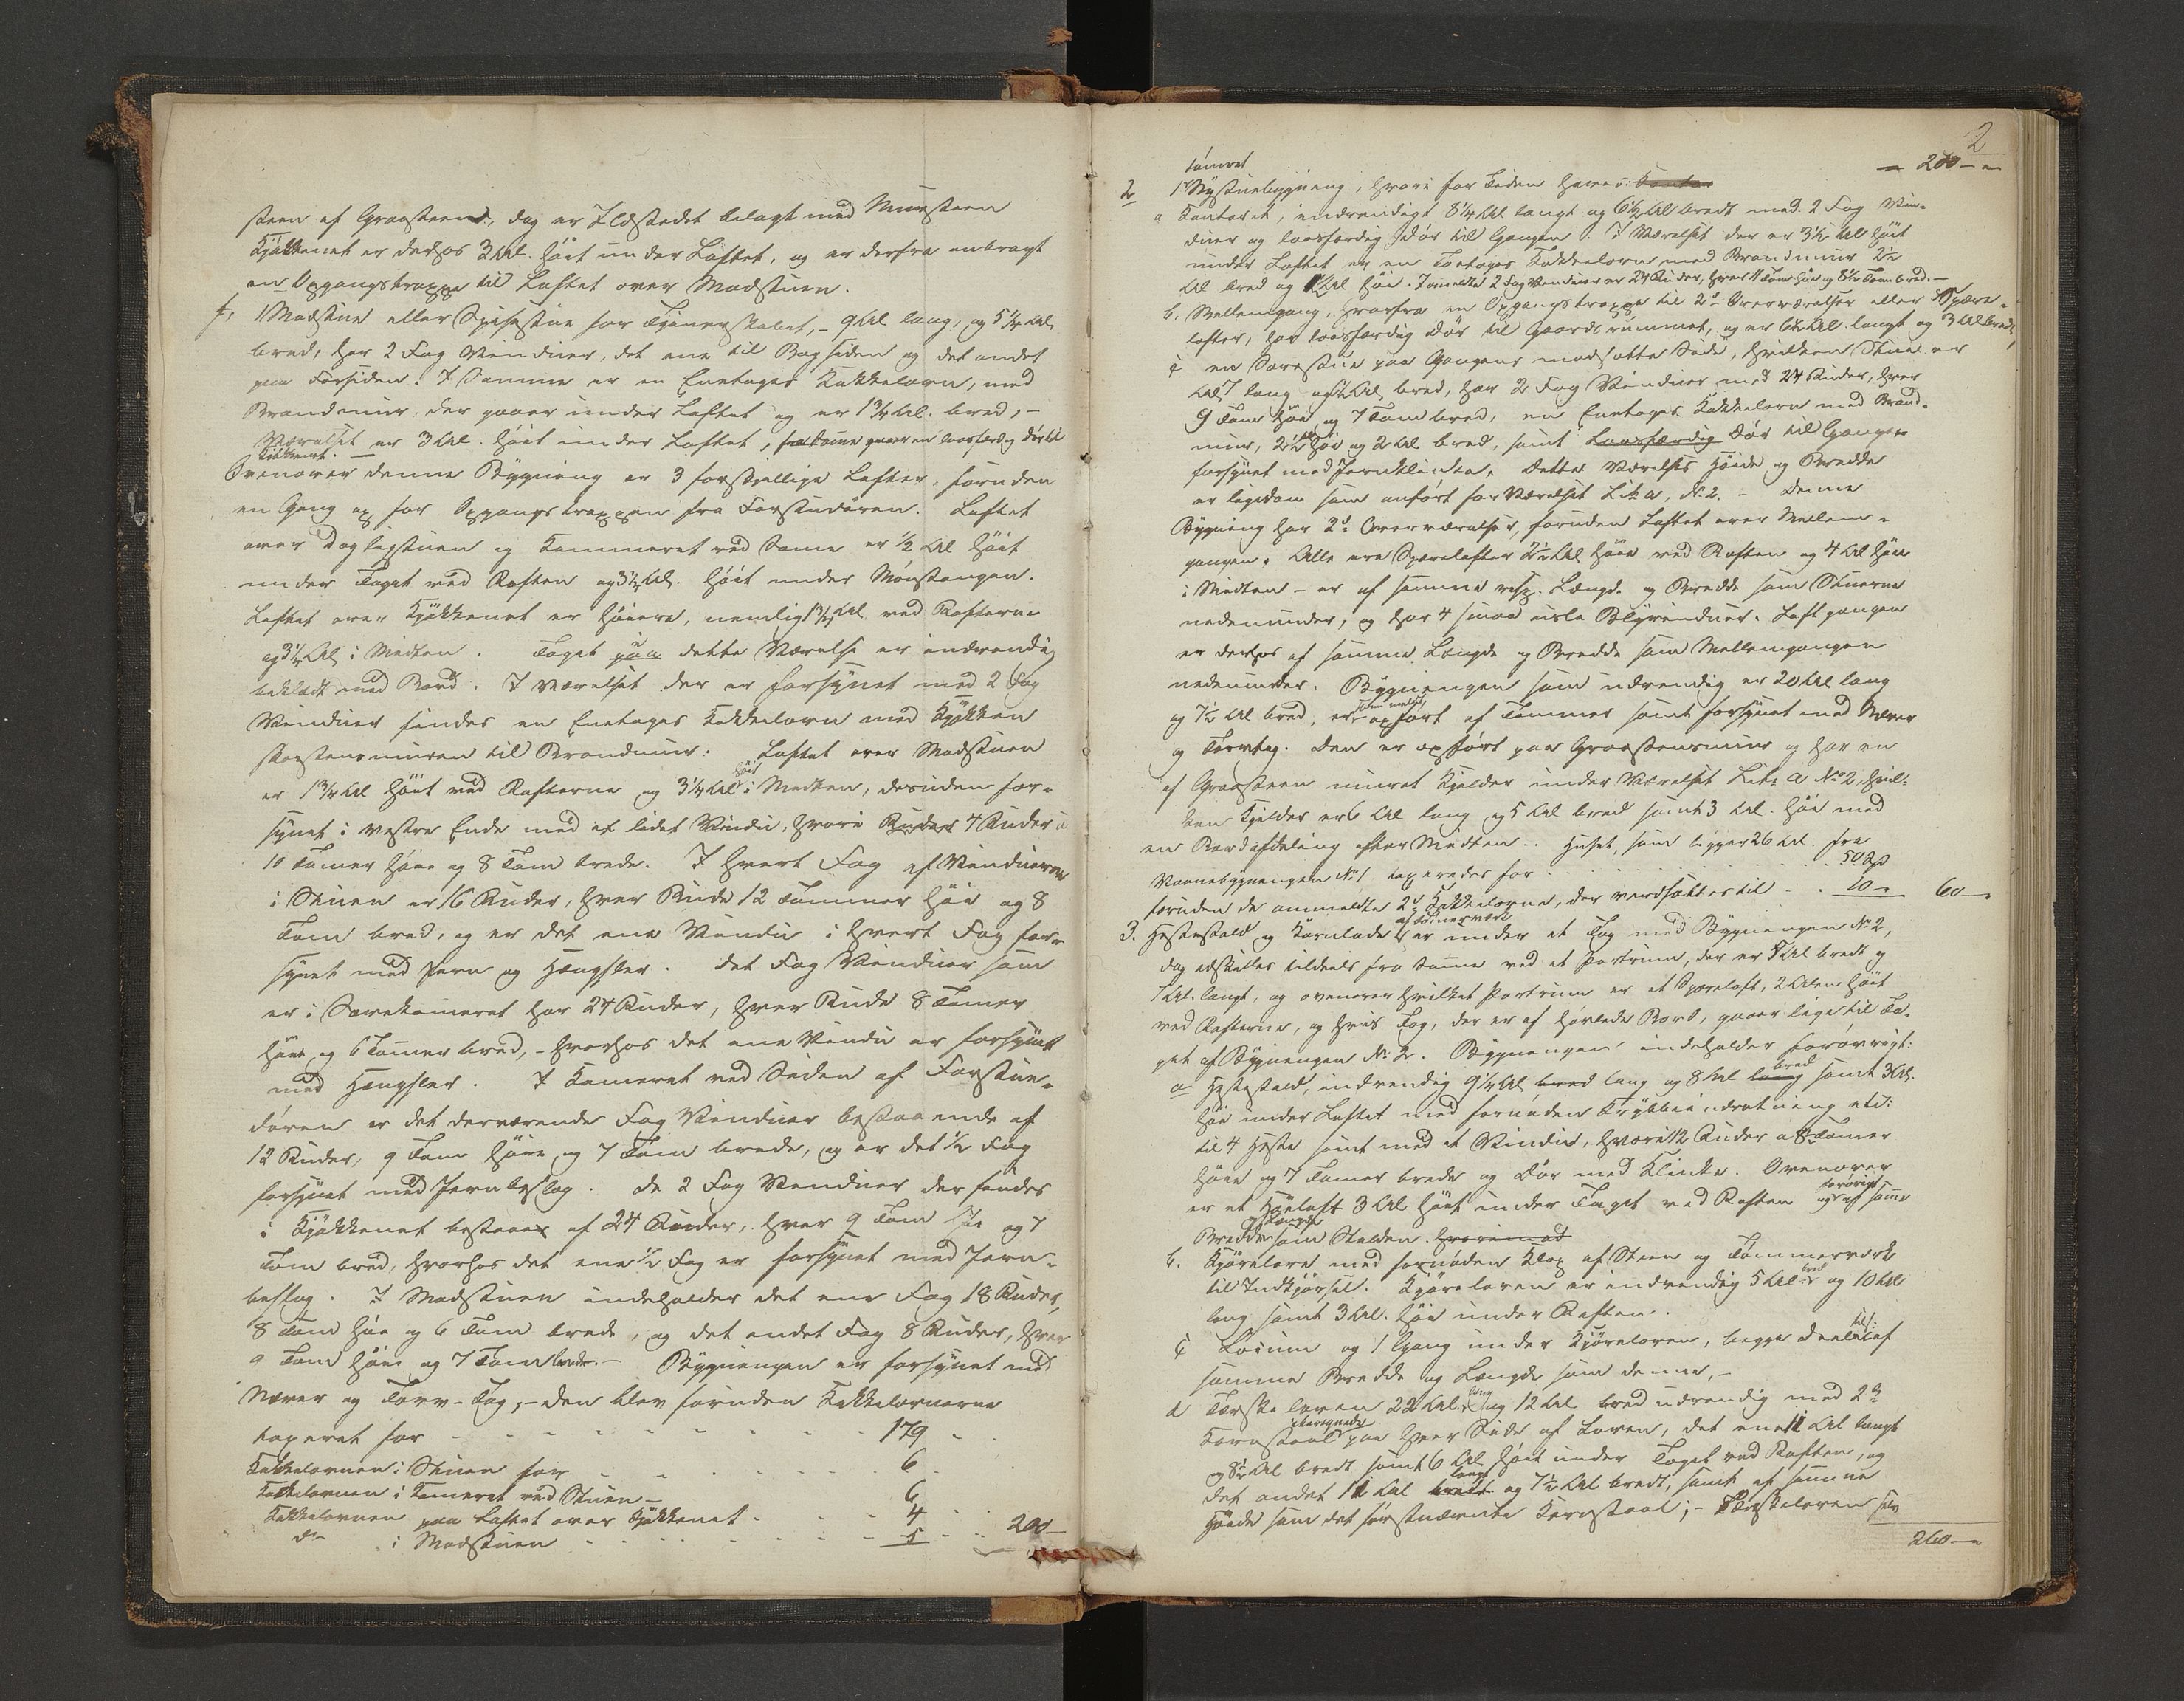 steen af Graasteen, dog er Ildstedet belagt med Muursteen
Kjøkkenet er derhos 3 Al. høit under Loftet, og er derfra anbragt
en Opgangstrappe til Loftet over Madstuen.
f, 1 Madstue eller Spisestue for Tjenerskabet, - 9 Al lang, og 5¼ Al.
bred, har 2 Fag Vinduer, det ene til Bagsiden og det andet
paa Forsiden. I Samme er en Eenetages Kakkelovn, med
Brandmuur der gaaer under Loftet og er 1¾ Al. bred, -
Værelset er 3 Al. høit under Loftet, fra Samme gaaer en laasfærdig dør til
Kjøkkenet. -
Ovenover denne Bygning er 3 forskjellige Lofter, foruden
en Gang op for Opgangstrappen fra Forstuedøren. Loftet
over Dagligstuen og Kammeret ved Samme er ½ Al høit
under Taget ved Raften og 3½ Al. høit under Mønstangen.
Loftet over Kjøkkenet er høiere, nemlig 1¾ Al ved Rafterne
og 3½ Al i Midten. Taget paa i dette Værelse er indvendig
beklædt med Bord. I Værelset der er forsynet med 2 Fag
Vinduer findes en Eenetages Kakkelovn med Kjøkken
skorstensmuren til Brandmuur. Loftet over Madstuen
er 1¾ Al høit ved Rafterne og 3¼ Al høit i Midten, desuden for-
synet i vestre Ende med et lidet Vindu, hvori Ruder 4 Ruder a
10 Tomer høie og 8 Tom brede. I hvert Fag af Vinduerne
i Stuen er 16 Ruder, hver Rude 12 Tommer høi og 8
Tom bred, og er det ene Vindu i hvert Fag for-
synet med Jern og Hængsler. Det Fag Vinduer som
er i Sovekameret har 24 Ruder, hver Rude 8 Tomer
høi og 6 Tomer bred, - hvorhos det ene Vindu er forsynet
med Hængsler. I Kameret ved Siden af Forstue-
døren er det derværende Fag Vinduer bestaaende af
12 Ruder, 9 Tom høie og 7 Tom brede, og er det ½ Fag
forsynet med Jernbeslag. De 2 Fag Vinduer der findes
i Kjøkkenet bestaaer af 24 Ruder, hver 9 Tom høi og 7
Tom bred, hvorhos det ene ½ Fag er forsynet med Jern-
beslag. I Madstuen indeholder det ene Fag 18 Ruder,
8 Tom høie og 6 Tom brede, og det andet Fag 8 Ruder, hver
9 Tom høi og 7 Tom bred. - Bygningen er forsynet med
Næver og Torv-Tag, - den blev foruden Kakkelovnene
taxeret for - - - 179 -
Kakkelovnen i Stuen for - - 6
Kakkelovnen i Kameret ved Stuen - 6
Kakkelovnen paa Loftet over Kjøkkenet - 4
do i Madstuen - - 5 - 200 -
2
- 200 -
2 1 tømret Nystuebygning, hvori for Tiden haves:
a Kontoret, indvendigt 8¼ Al langt og 6½ Al bredt med 2 Fag Vin-
duer og laasfærdig Dør til Gangen. I Værelset der er 3½ Al høit
under Loftet er en Toetages Kakkelovn med Brandmuur 2½
Al bred og Al høi. I anmeldte 2 Fag Vinduer er 24 Ruder, hver 11 Tom høi og 8½ Tom bred. -
b. Mellemgang, hvorfra en Opgangstrappe til 2de Overværelser eller Sperre-
lofter, har laasfærdig Dør til Gaardsrummet, og er 6½ Al. langt og 3 Al bred,
c en Sovestue paa Gangens modsatte Side, hvilken Stue er
Al 7 lang og Al bred, har 2 Fag Vinduer med 24 Ruder, hver
9 Tom høi og 7 Tom bred, en Eenetages Kakkelovn med Brand-
muur, 2½ Al høi og 2 Al. bred, samt laasfærdig Dør til Gangen
forsynet med Jernklinke. Dette Værelses Høide og Bredde
er ligedan som anført for Værelset Lit. a, No. 2. - Denne
Bygning har 2de Overværelser, foruden Loftet over Mellem-
gangen. Alle ere Sperrelofter Al høie ved Raften og 4 Al høie
i Midten - er af samme resp. Længde og Bredde som Stuerne
nedenunder, og har 4 smaa usle Blyvinduer. Loftgangen
er derhos af samme Længde og Bredde som Mellemgangen
nedenunder. Bygningen som udvendig er 20 Al lang
og 7½ Al bred, er som meldt opført af Tømmer samt forsynet med Næver
og Torvtag. Den er opført paa Graasteensmuur og har en
af Graasteen muret Kjelder under Værelset Lit. a No 2, hvil-
ken Kjelder er 6 Al lang og 5 Al bred samt 3 Al. høi med
en Bordafdeling efter Midten. Huset, som ligger 26 Al. fra
Vaanebygningen No 1 taxeredes for . . . 50 Spd
foruden de anmeldte 2de Kakkelovne, der værdsættes til - . 10 - 60 -
3. Hestestald og Kornlade af Tømmerværk er under et Tag med Bygningen No 2,
dog adskilles tildeels fra Samme ved et Portrum, der er 5 Al bredt og
7 Al. langt, og ovenover hvilket Portrum er et Sperreloft, 2 Alen høit
ved Rafterne, og hvis Tag, der er af høvlede Bord, gaaer lige til Ta-
get af Bygningen No. 2. Bygningen indeholder forøvrigt:
a Hestestald, indvendig 9¼ Al bred lang og 8 Al lang bred samt 3 Al.
høi under Loftet med fornøden Krybbeindretning etc:
til 4 Heste samt med et Vindu, hvori 12 Ruder a 8½ Tomer
høie og 7 Tomer brede og Dør med Klinke. Ovenover
er et Høeloft 3 Al høit under Taget ved Raften og forøvrigt af samme
Bredde og Længde som Stalden. hvorimod
b. Kjørelove med fornøden Klop af Steen og Tømmerværk
til Indkjørsel. Kjøreloven er indvendig 5 Al bred og 10 Al
lang samt 3 Al. høi under Raften.
c Locum og 1 Gang under Kjøreloven, begge Dele til: af
samme Bredde og Længde som denne, -
d Tærskeloven 22 Al. lang og 12 Al bred udvendig med 2de
Kornstaal paa hver Side af Loven, det ene 11 Al langt
og 8½ Al bredt samt 6 Al høit under Taget ved Raften, og
det andet 11 Al bredt langt og 7½ Al bredt, samt af samme
Høide som det førstnævnte Kornstaal; - Tærskeloven selv
260 -